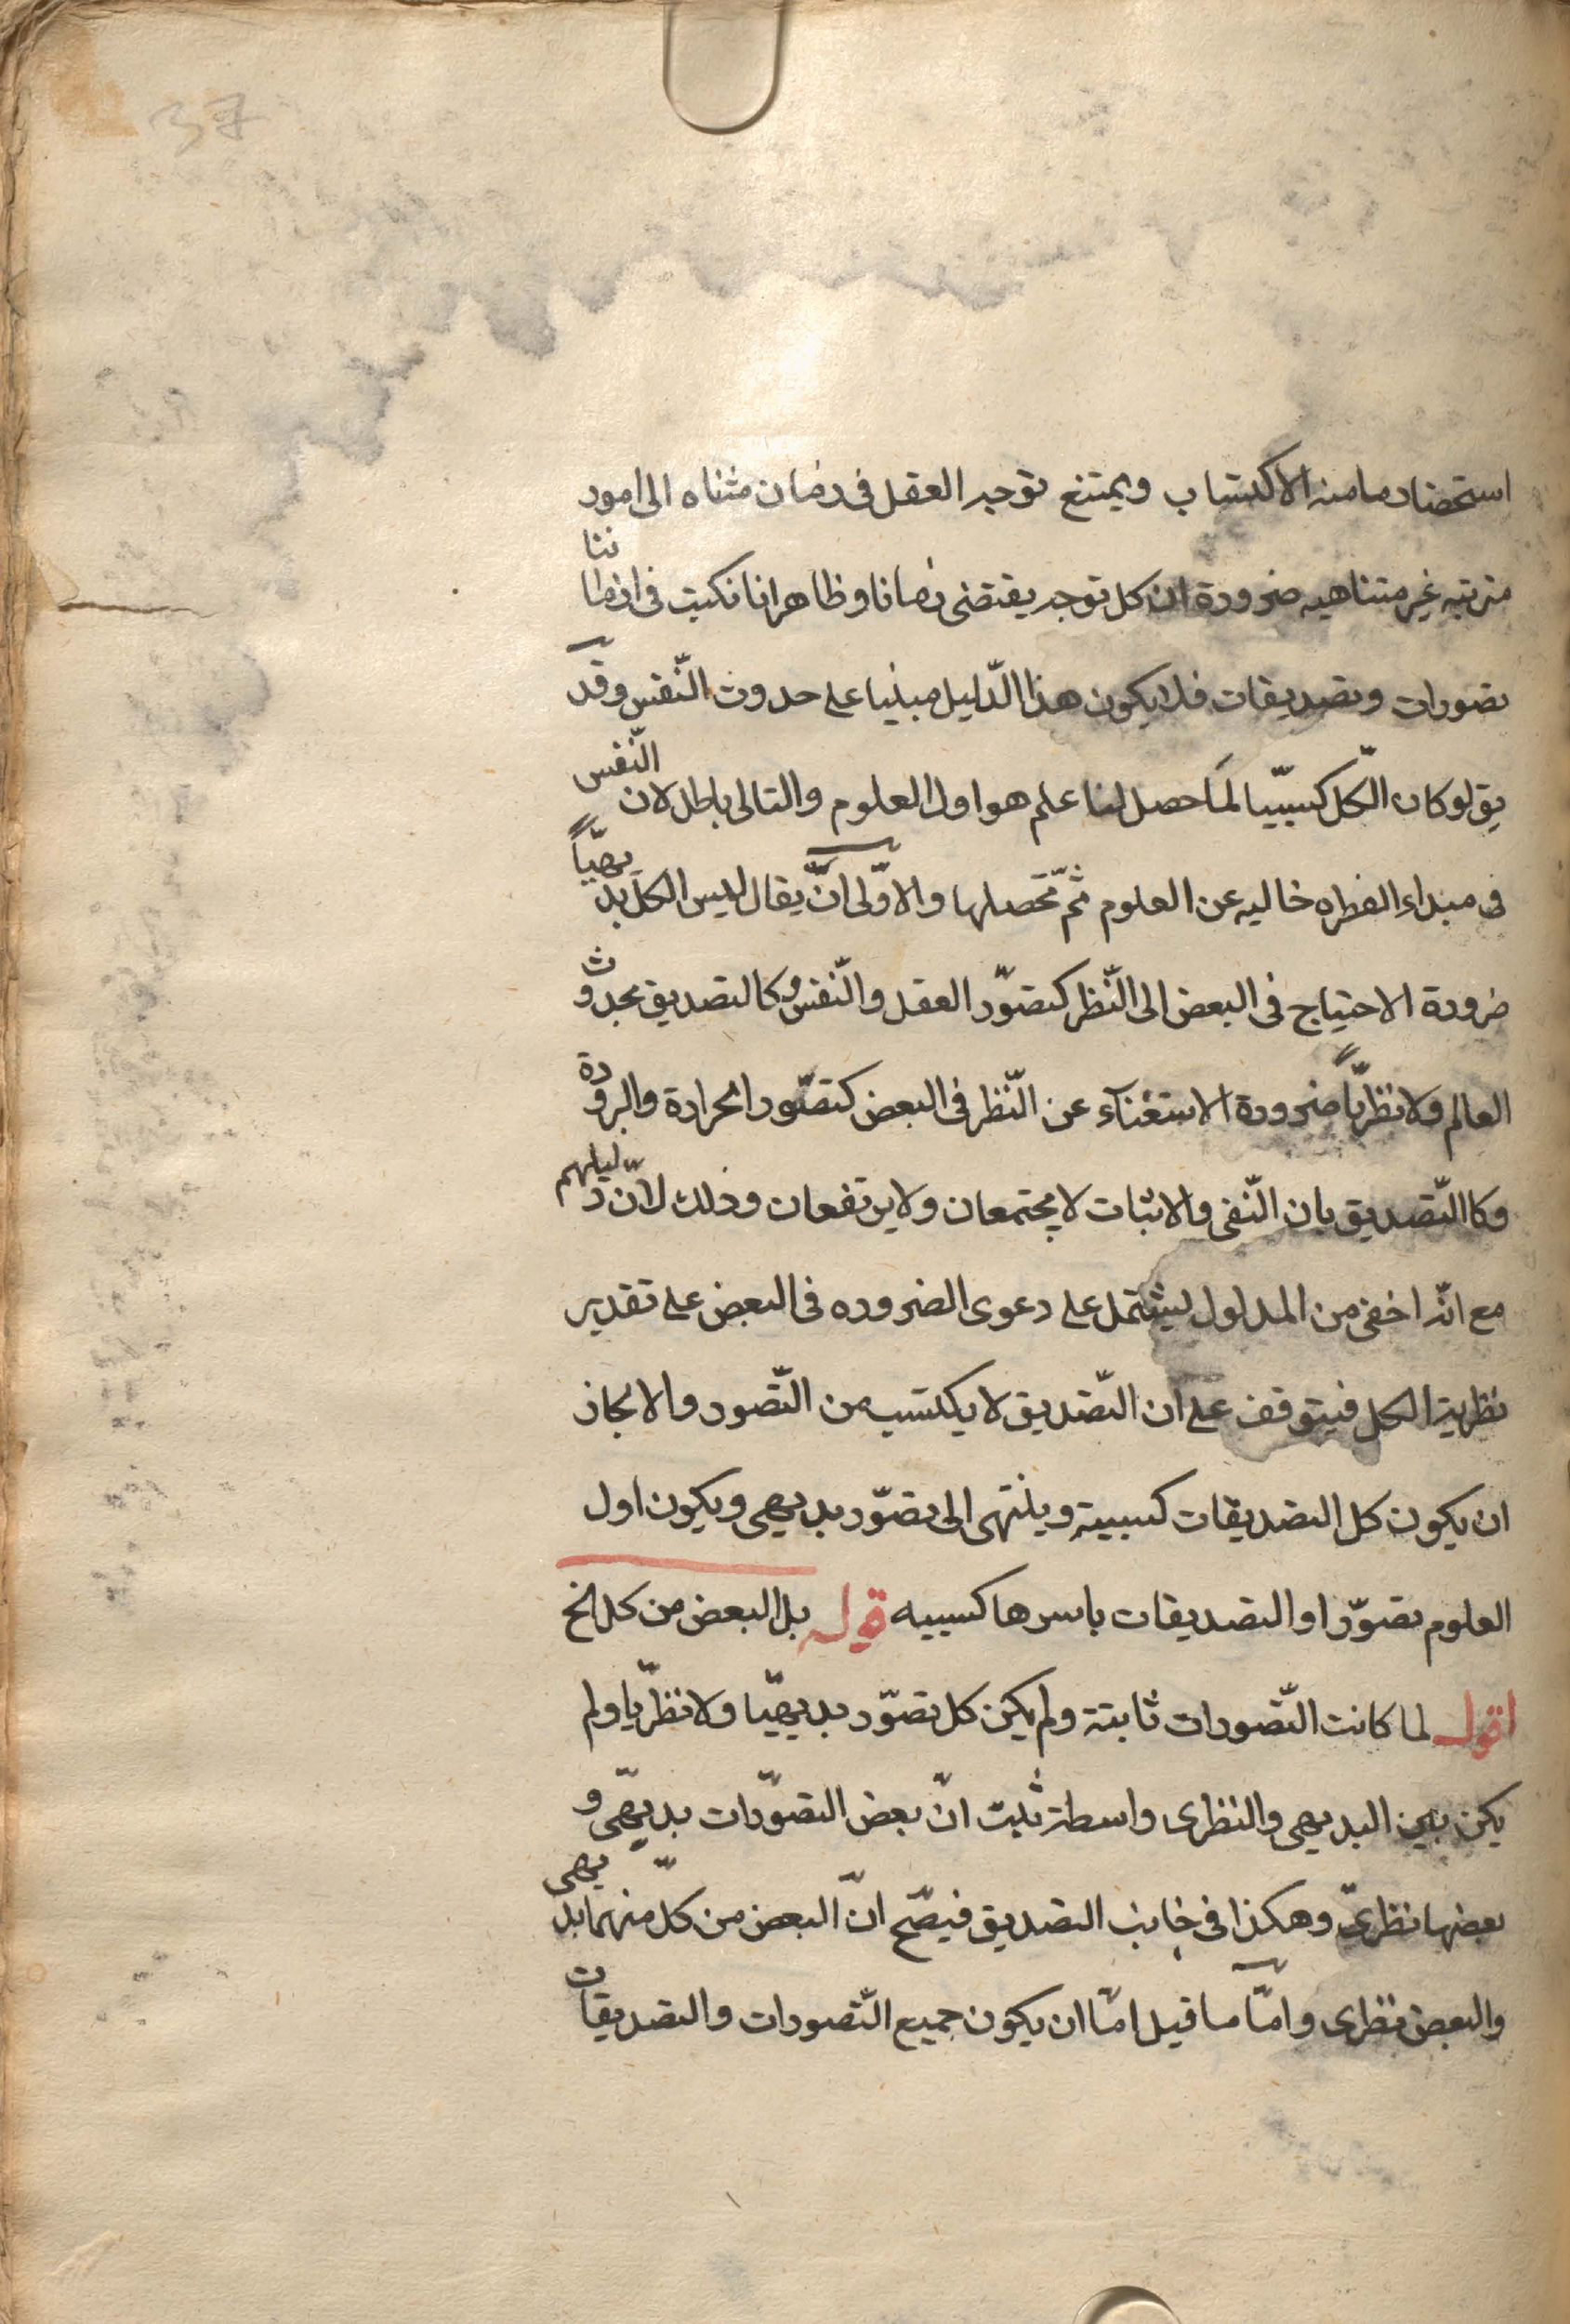 37
استحضار ما منه الاكتساب ويمتنع توجه العقل فى زمان متناه الى امور
مترتبه غير متناهيه ضرورة ان كل توجه يقتضى زمانا وظاهر انا نكتب فى ازماننا
تصورات وتصديقات فلا يكون هذا الدّليل مبنيا على حدوث النّفس وقد
يق لو كان الكلّ كسبيّا لما حصل لنا علم هو اول العلوم والتالى باطل لان النّفس
فى مبداء الفطره خاليه عن العلوم ثمّ تحصلها والاوّلى انّ يقال ليس الكل بديهيّاً
ضرورة الاحتياج فى البعض الى النّظر كتصوّر العقل والنّفس وكالتصديق بحدوث
العالم ولا نظريّاً ضرورة الاستغنآء عن النّظر فى البعض كتصّور الحرارة والبرودة
وكاالتّصديق بان النّفى والاثبات لا يجتمعان ولا يرتفعان وذلك لانّ دليلهم
مع انّه اخفى من المدلول ليشتمل على دعوى الضروره فى البعض على تقدير
نظرية الكل فيتوقف على ان التّصديق لا يكتسب من التّصور والا لجاز
ان يكون كل التصديقات كسبية وينتهى الى تصوّر بديهى ويكون اول
العلوم تصوّرا والتصديقات باسرها كسبيه قوله بل البعض من كل الخ
اقول لما كانت التّصورات ثابتة ولم يكن كل تصوّر بديهيّا ولا نظريّا ولم
يكن بين البديهى والنظرى واسطة ثبت انّ بعض التصوّرات بديهّى و
بعضها نظرىّ وهكذا فى جانب التصديق فيصّح انّ البعض من كلّ منهما بديهى
والبعض نظرى وامّا ما قيل امّا ان يكون جميع التّصورات والتصديقات